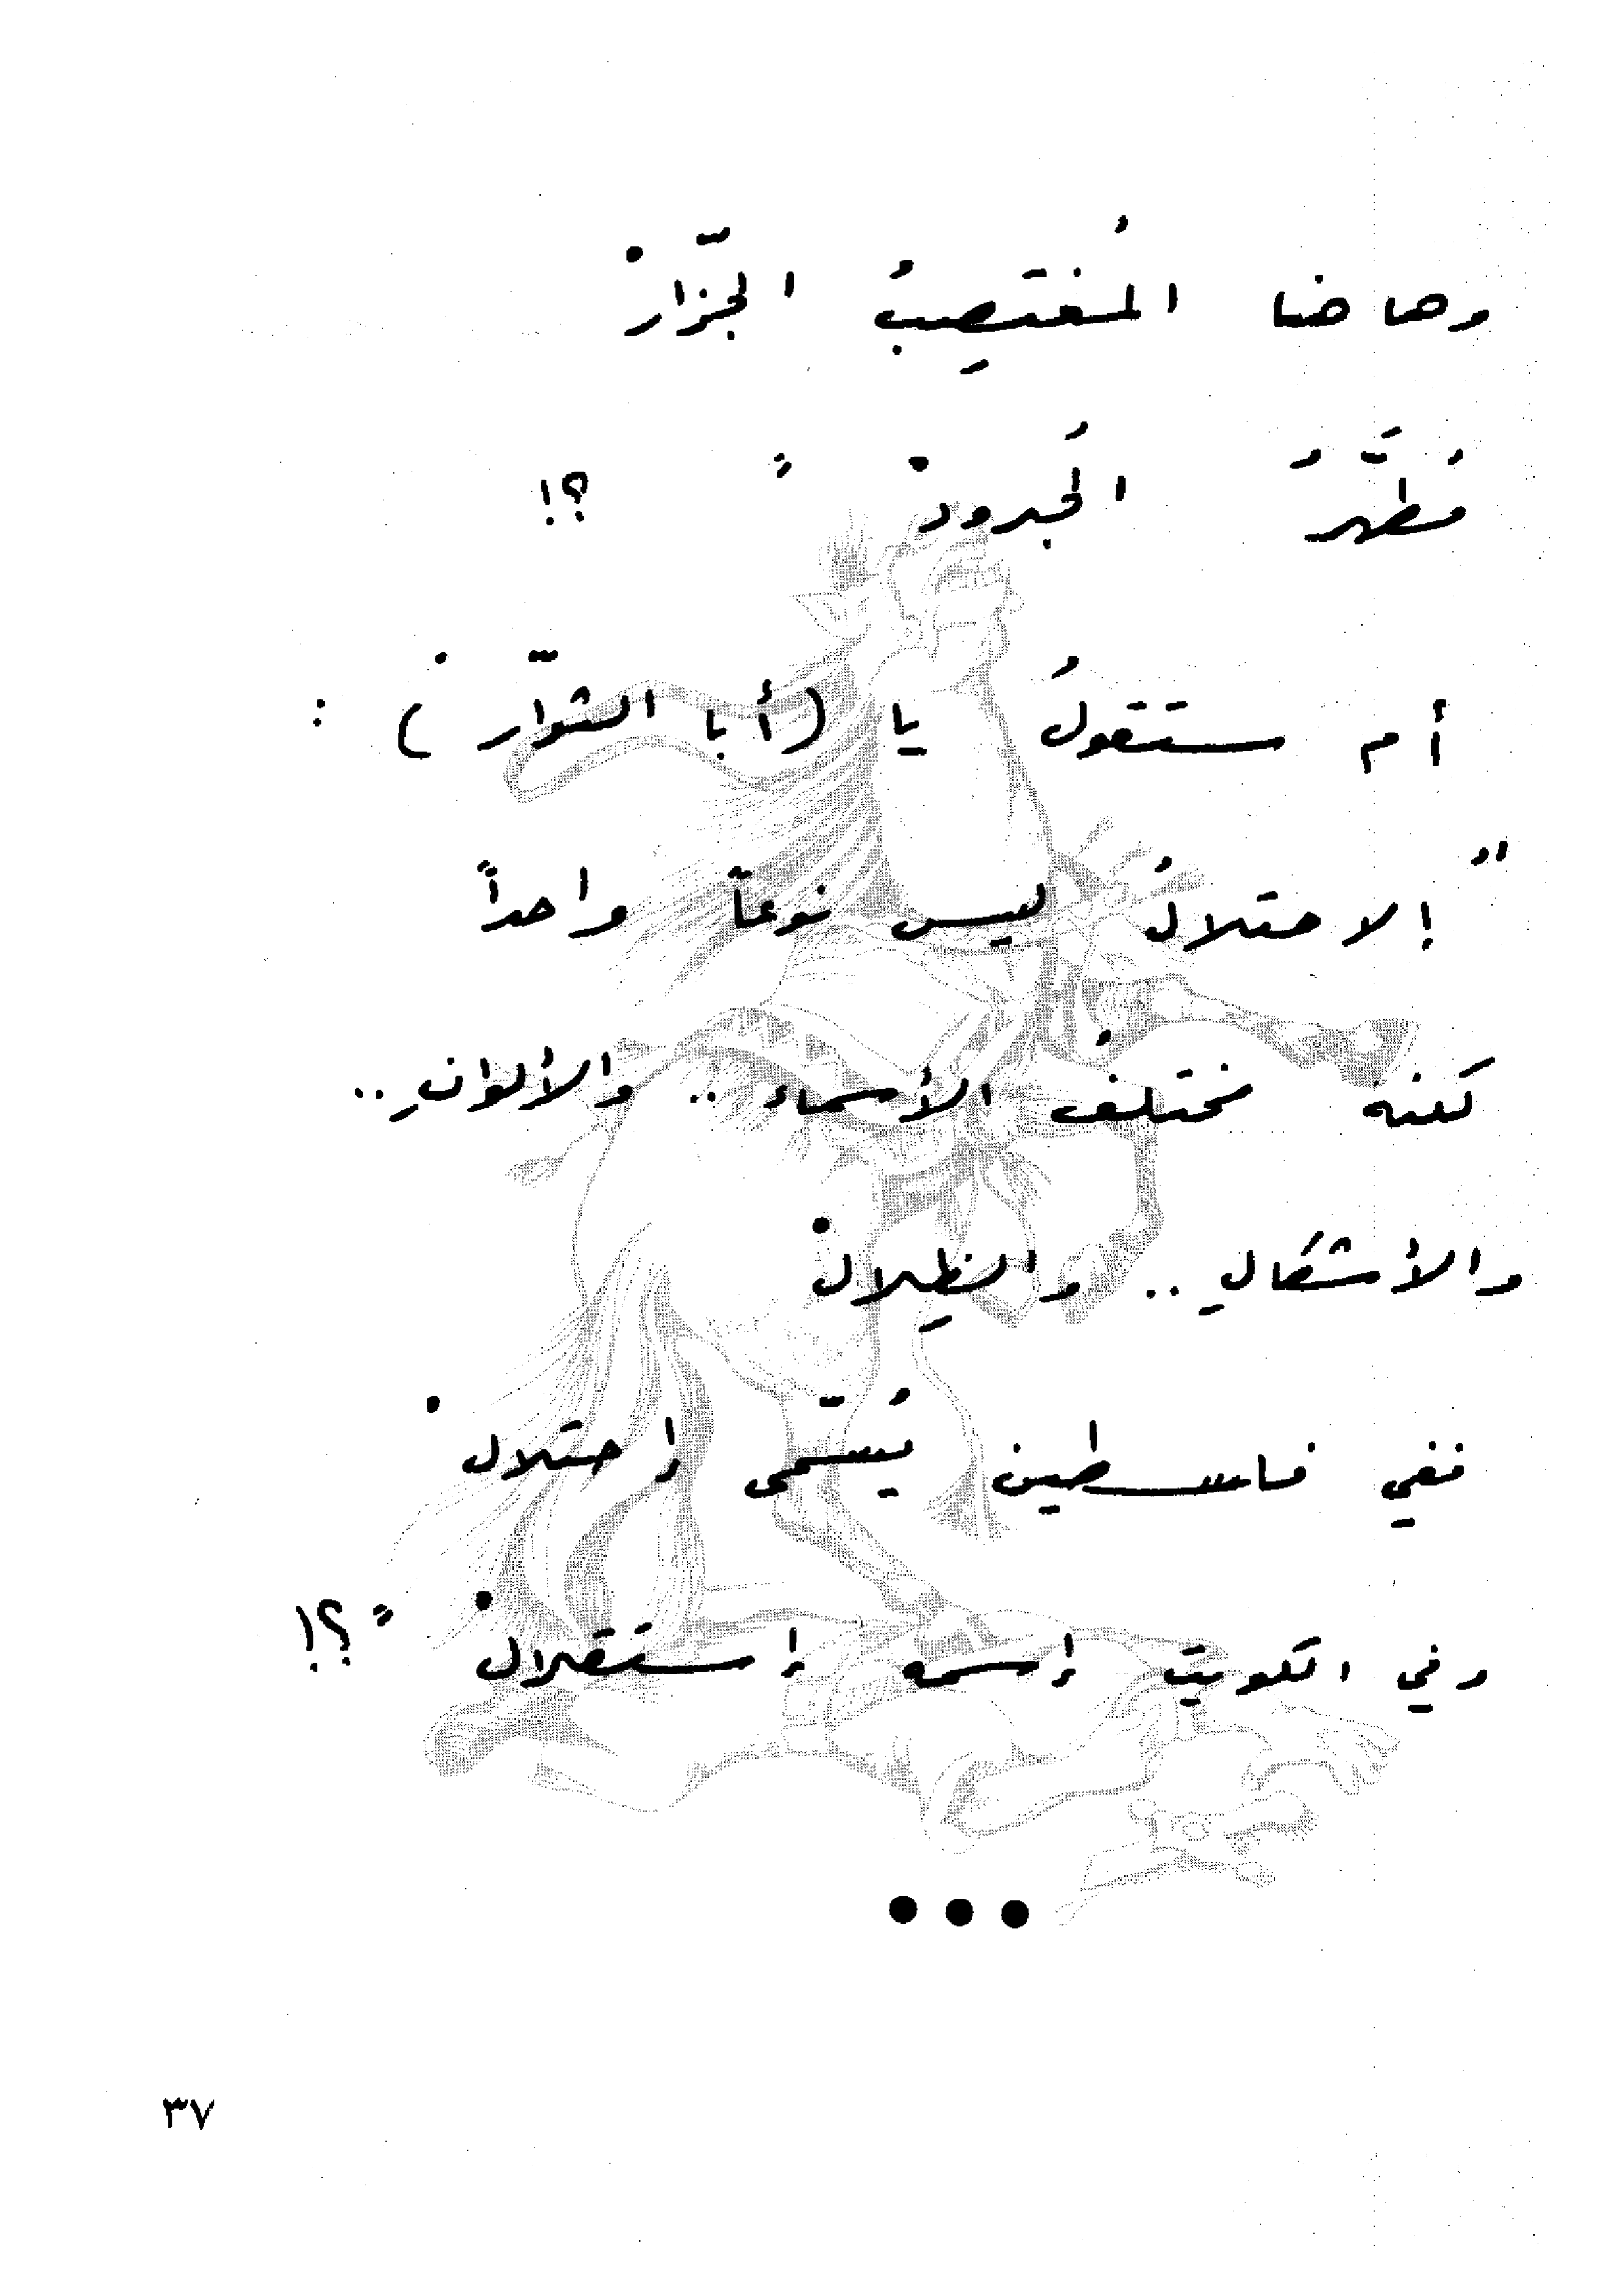 وهاهنا المُغتصِبُ الجزّارْ
مُطَهَّرُ الجُدودْ " ؟!
أم ستقولُ يا (أبا الثوّارْ) :
" إلاحتلالُ ليس نوعاً واحداً
لكنه مختلفُ الأسماء .. والألوانِ ..
والأشكالِ .. والظِلالْ
ففي فلسطين يُسمّى إحتلالْ
وفي الكويت إسمه إستقلالْ " ؟!
•••
٣٧